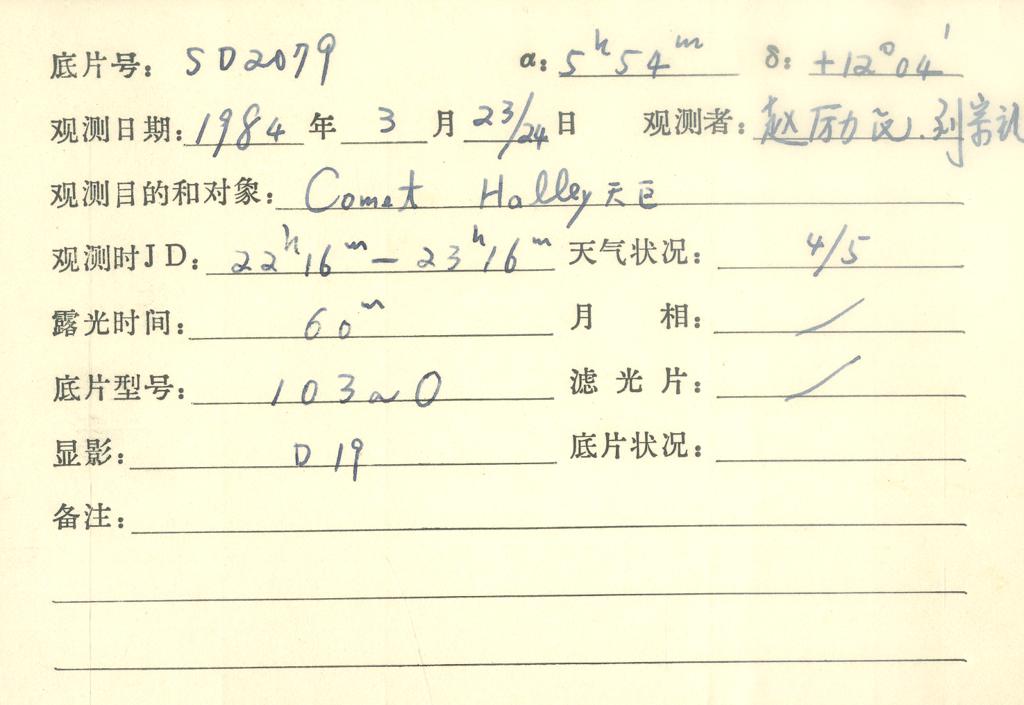 底片号: SD2079 α: 5ʰ54ᵐ δ: +12°04′
观测日期: 1984 年 3 月 23/24 日 观测者: 赵 刘宗礼
观测目的和对象: Comet Halley 天区
观测时JD: 22ʰ16ᵐ — 23ʰ16ᵐ 天气状况: 4/5
露光时间: 60ᵐ 月 相: /
底片型号: 103a0 滤光片: /
显影: D19 底片状况:
备注: